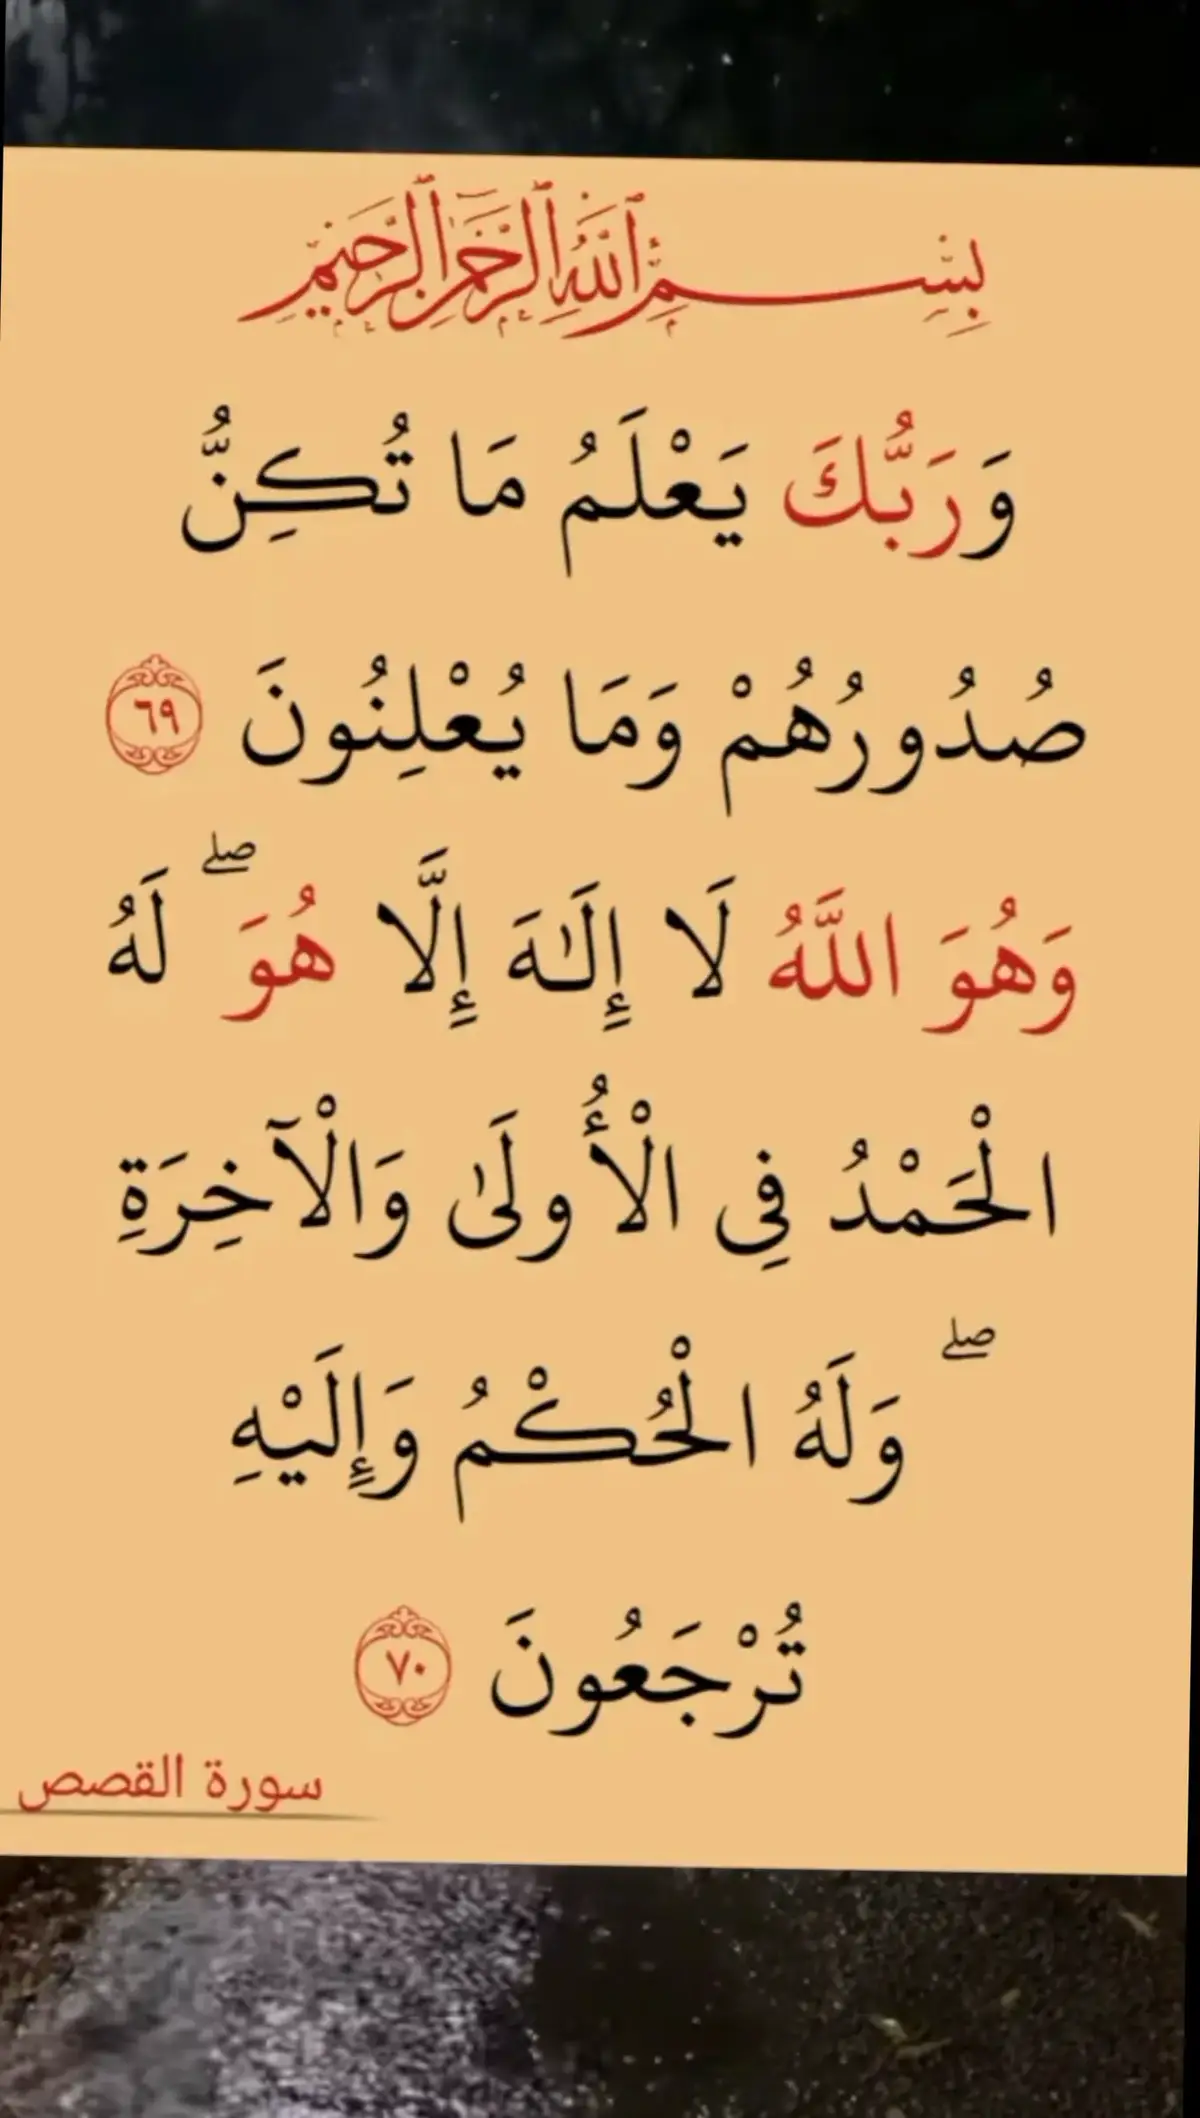 بِسْمِ ٱللَّهِ ٱلرَّحْمَٰنِ ٱلرَّحِيمِ
وَرَبُّكَ يَعْلَمُ مَا تُكِنُّ
صُدُورُهُمْ وَمَا يُعْلِنُونَ ٦٩
وَهُوَ اللَّهُ لَا إِلَٰهَ إِلَّا هُوَ ۖ لَهُ
الْحَمْدُ فِي الْأُولَىٰ وَالْآخِرَةِ
ۖ وَلَهُ الْحُكْمُ وَإِلَيْهِ
تُرْجَعُونَ ٧٠
سورة القصص